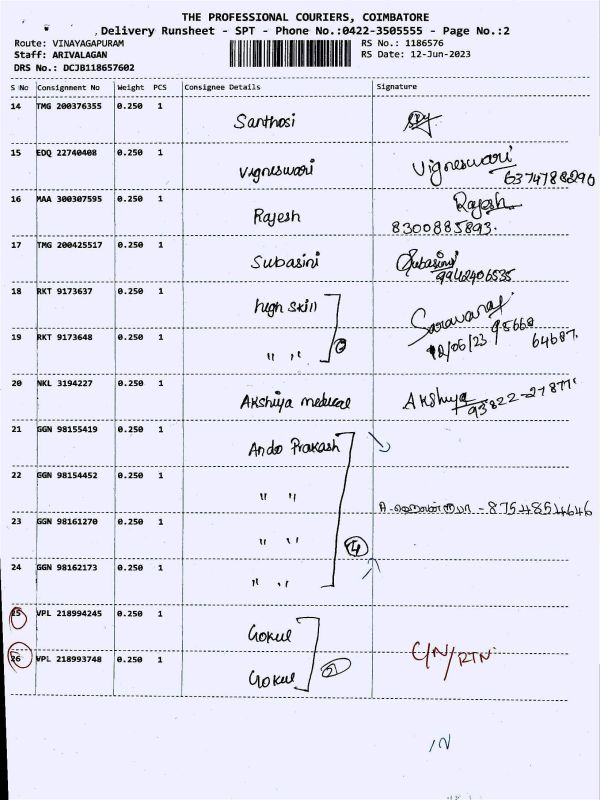 THE PROFESSIONAL COURIERS, COIMBATORE
Delivery Runsheet - SPT - Phone No.:0422-3505555 - Page No.:2
Route: VINAYAGAPURAM RS No.: 1186576
Staff: ARIVALAGAN RS Date: 12-Jun-2023
DRS No.: DCJB118657602
S No Consignment No Weight PCS Consignee Details Signature
14 TMG 200376355 0.250 1 Santhosi
15 EDQ 22740408 0.250 1 Vigneswari Vigneswari
6374788290
16 MAA 300307595 0.250 1 Rajesh Rajesh
8300885893.
17 TMG 200425517 0.250 1 Subasini Subasini
9942406535
18 RKT 9173637 0.250 1 high skill Saravanan 95668
19 RKT 9173648 0.250 1 " " 12/06/23 64687.
20 NKL 3194227 0.250 1 Akshiya medical Akshiya
93822-27877
21 GGN 98155419 0.250 1 Ando Prakash
22 GGN 98154452 0.250 1 " " - 8754854646
23 GGN 98161270 0.250 1 " " 4
24 GGN 98162173 0.250 1 " "
25 VPL 218994245 0.250 1 Gokul
26 VPL 218993748 0.250 1 Gokul 2 C/N/RTN
IN